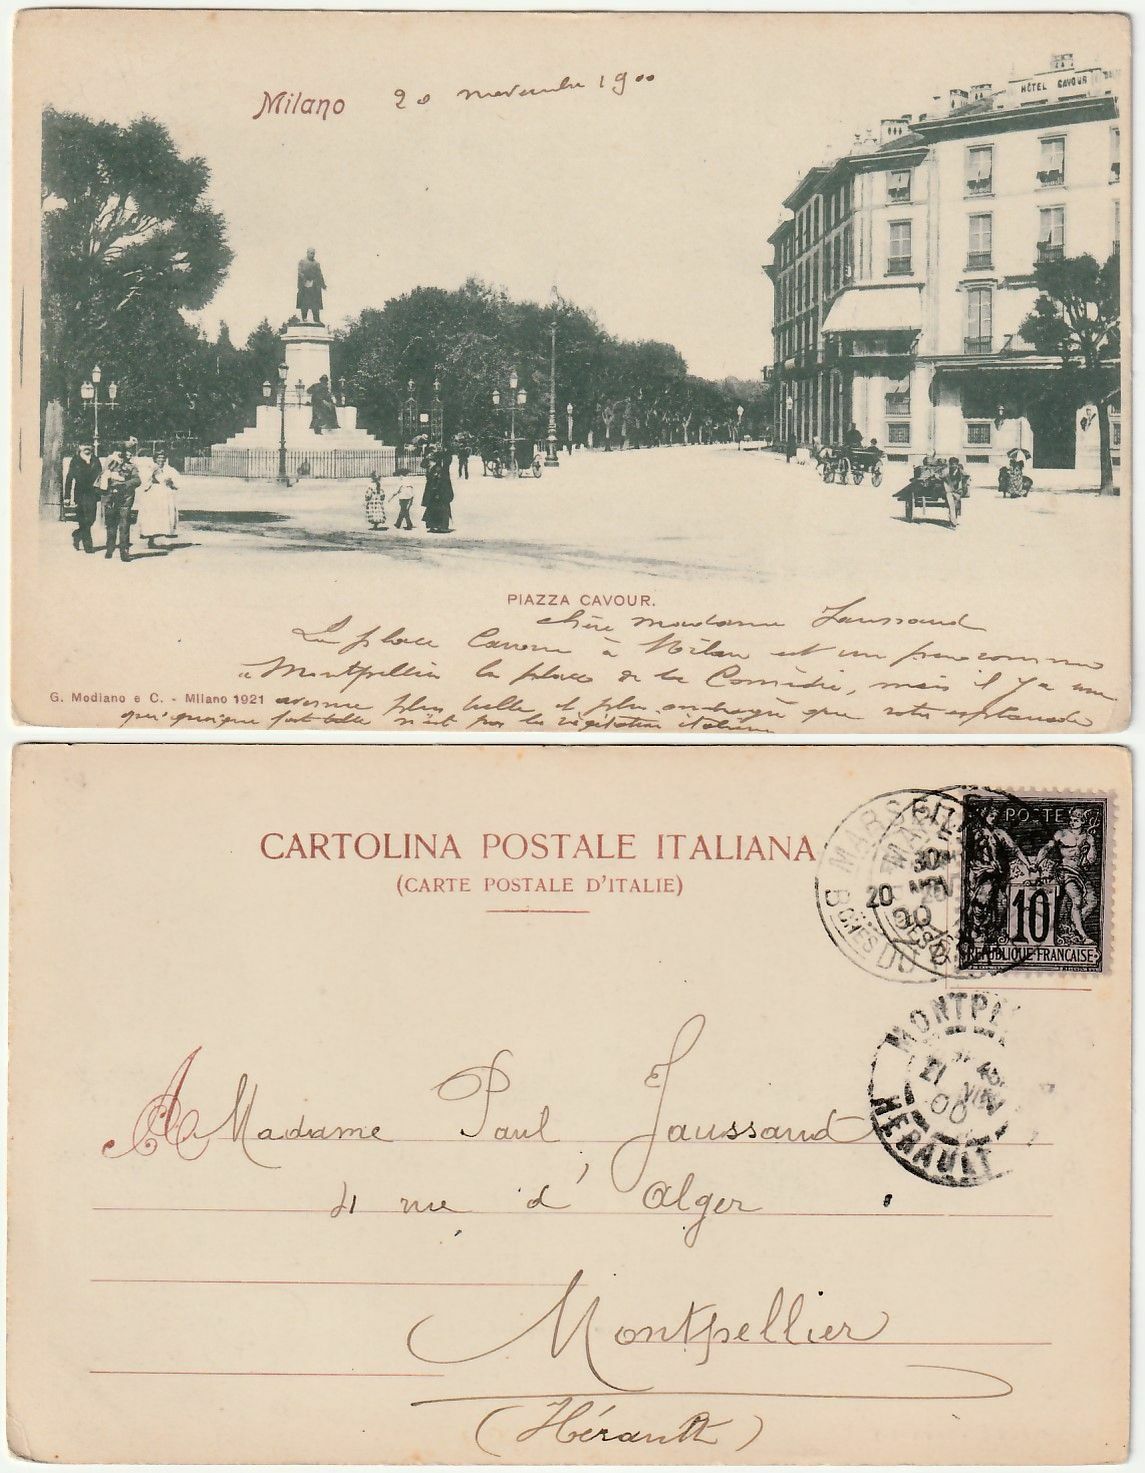 Milano 20 novembre 1900
HÔTEL CAVOUR
PIAZZA CAVOUR.
Chère madame Jaussaud
La place Cavour à Milan est un peu comme
à Montpellier la place de la Comédie, mais il y a une
G. Modiano e C. - Milano 1921
avenue plus belle et plus que votre esplanade
qui quoique fort belle n'est pas la végétation italienne
CARTOLINA POSTALE ITALIANA
(CARTE POSTALE D'ITALIE)
POSTE
10
REPUBLIQUE FRANCAISE
MARSEILLE
20 NOV 00
BCHES DU
MONTPEL
21 NOV 00
HERAULT
A Madame Paul Jaussaud
4 rue d'Alger
Montpellier
(Hérault)